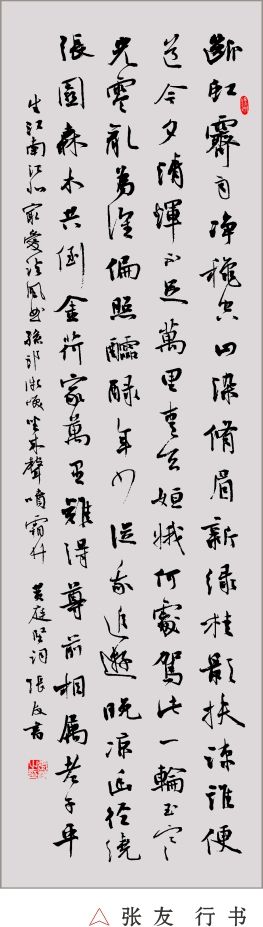 斷虹霽雨淨秋空山染脩眉新綠桂影扶疎誰便
道今夕清輝不足萬里青天姮娥何處駕此一輪玉寒
光零亂為誰偏照醽醁年少從我追遊晚涼幽徑繞
張園森木共倒金荷家萬里難得尊前相屬老子平
生江南江北最愛臨風曲孫郎微笑坐來聲噴霜竹 黃庭堅詞 張友書
张友 行书